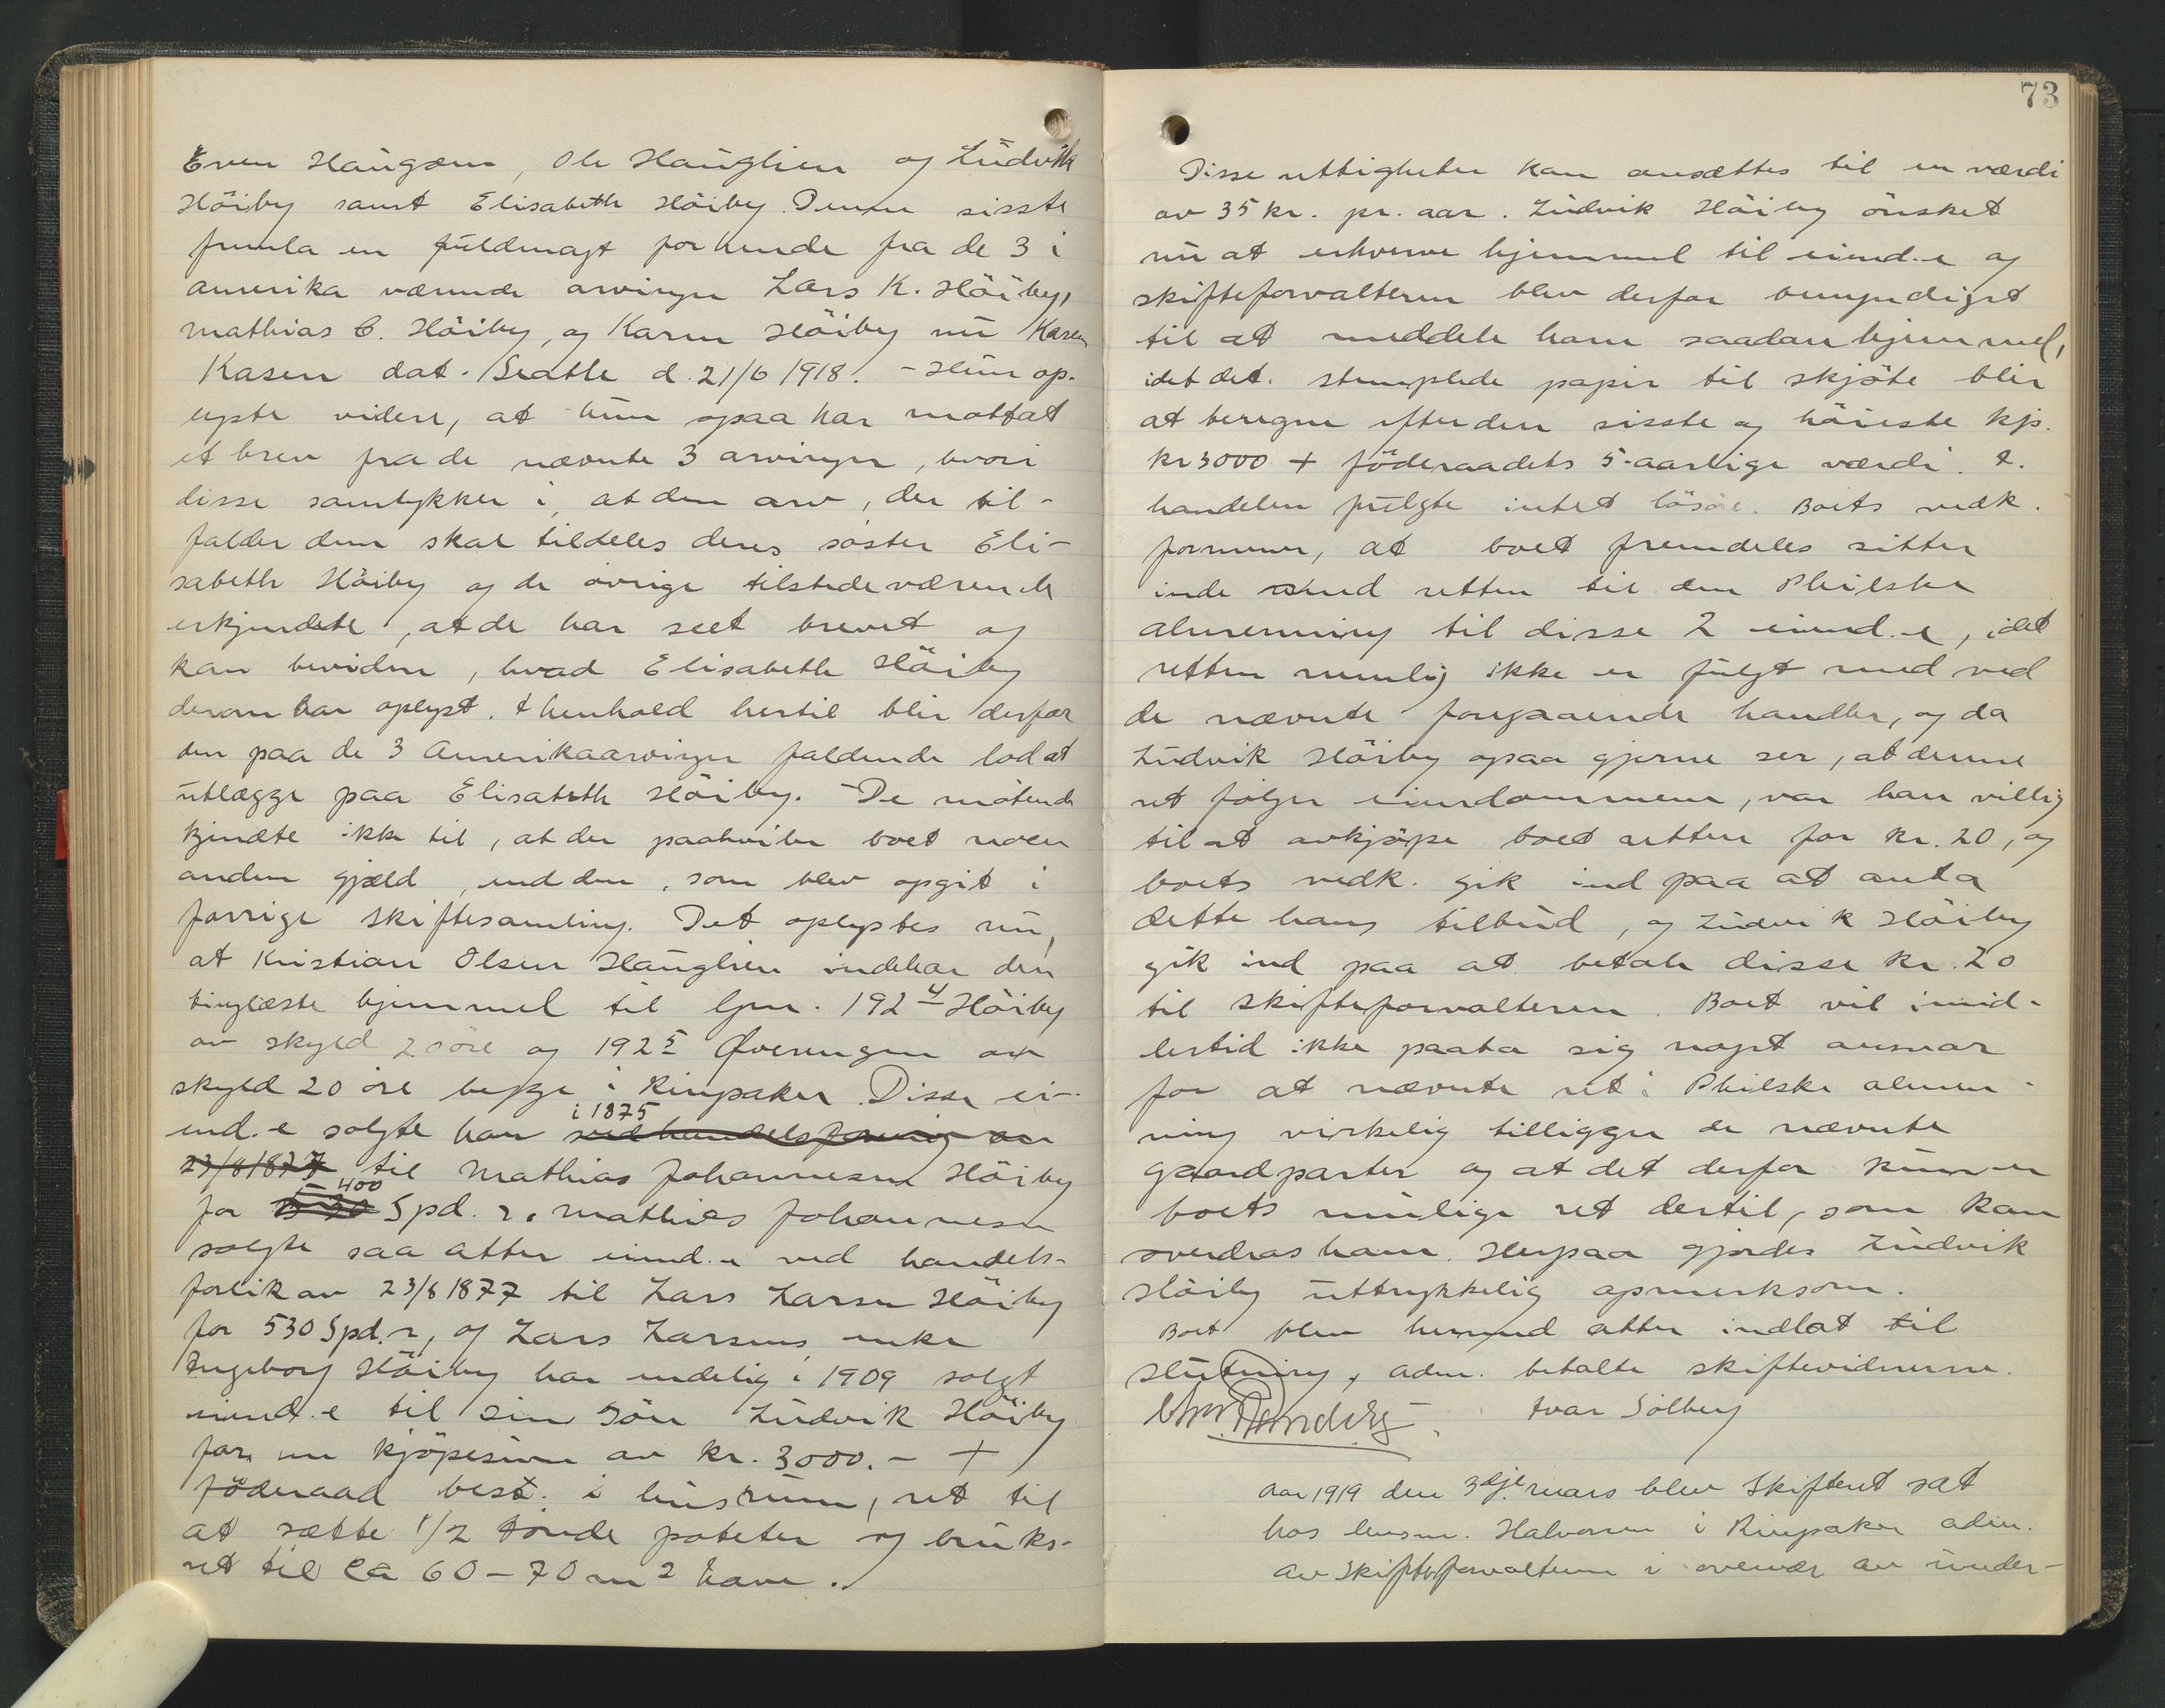 Even Haugom, Ole Hauglien og Ludvik
Höiby samt Elisabeth Höiby. Denne sisste
fremla en fuldmagt for hende fra de 3 i
amerika værende arvinger Lars K. Höiby,
Mathias C. Höiby, og Karen Höiby nu Karen
Kasen dat. Seattle d. 21/6 1918. - Hun op-
lyste videre, at hun ogsaa har mottat
et brev fra de nævnte 3 arvinger, hvori
disse samtykker i, at den arv, der til-
falder dem skal tildeles deres söster Eli-
sabeth Höiby og de övrige tilstedeværende
erkjendte, at de har seet brevet og
kan bevidne, hvad Elisabeth Höiby
derom har oplyst. I henhold hertil blir derfor
den paa de 3 Amerikaarvinger faldende lod at
utlægge paa Elisabeth Höiby. - De mötende
kjendte ikke til, at der paahviler boet noen
anden gjæld, end den, som blev opgit i
forrige skiftesamling. Det oplystes nu,
at Kristian Olsen Hauglien indehar den
tinglæste hjemmel til gnr. 192 4 Höiby
av skyld 2 öre og 192 5 Øverengen av
skyld 20 öre begge i Ringsaker. Disse ei-
end.e solgte han i 1875 ved handelsforlig av
23/8 1877 til Mathias Johannesen Höiby
for 530 400 Spd.r. Mathias Johannesen
solgte saa atter eiend.e ved handels-
forlik av 23/8 1877 til Lars Larsen Höiby
for 530 Spd.r, og Lars Larsens enke
Ingeborg Höiby har endelig i 1909 solgt
eiend.e til sin sön Ludvik Höiby
for en kjöpesum av kr. 3000.- +
föderaad best. i husrum, ret til
at sætte 1/2 tönde poteter og bruks-
ret til ca 60 - 70 m2 have.
73
Disse rettigheter kan ansættes til en værdi
av 35 kr. pr. aar. Ludvik Höiby önsket
nu at erhverve hjemmel til eiend.e og
skifteforvalteren blev derfor bemyndiget
til at meddele ham saadan hjemmel,
idet det stemplede papir til skjöte blir
at beregne efter den sisste og höieste kjs.
kr 3000 + föderaadets 5-aarlige værdi. I
handelen fulgte intet lösöre. Boets vedk.
formener, at boet fremdeles sitter
inde med retten til den Philske
almenning til disse 2 eiend.e, idet
retten nemlig ikke er fulgt med ved
de nævnte foregaaende handler, og da
Ludvik Höiby ogsaa gjerne ser, at denne
ret fölger eiendommene, var han villig
til at avkjöpe boet retten for kr. 20, og
boets vedk. gik ind paa at anta
dette hans tilbud, og Ludvik Höiby
gik ind paa at betale disse kr. 20
til skifteforvalteren. Boet vil imid-
lertid ikke paata sig noget ansvar
for at nævnte ret i Philske almen-
ning virkelig tilligger de nævnte
gaardparter og at det derfor kun er
boets mulige ret dertil, som kan
overdras ham. Herpaa gjordes Ludvik
Höiby uttrykkelig opmerksom.
Boet blev hermed atter indlat til
slutning, adm. betalte skiftevidnerne.
Ivar Solberg
Aar 1919 den 3dje mars blev Skifteret sat
hos lensm. Halvorsen i Ringsaker adm.
av Skifteforvalteren i overvær av under-